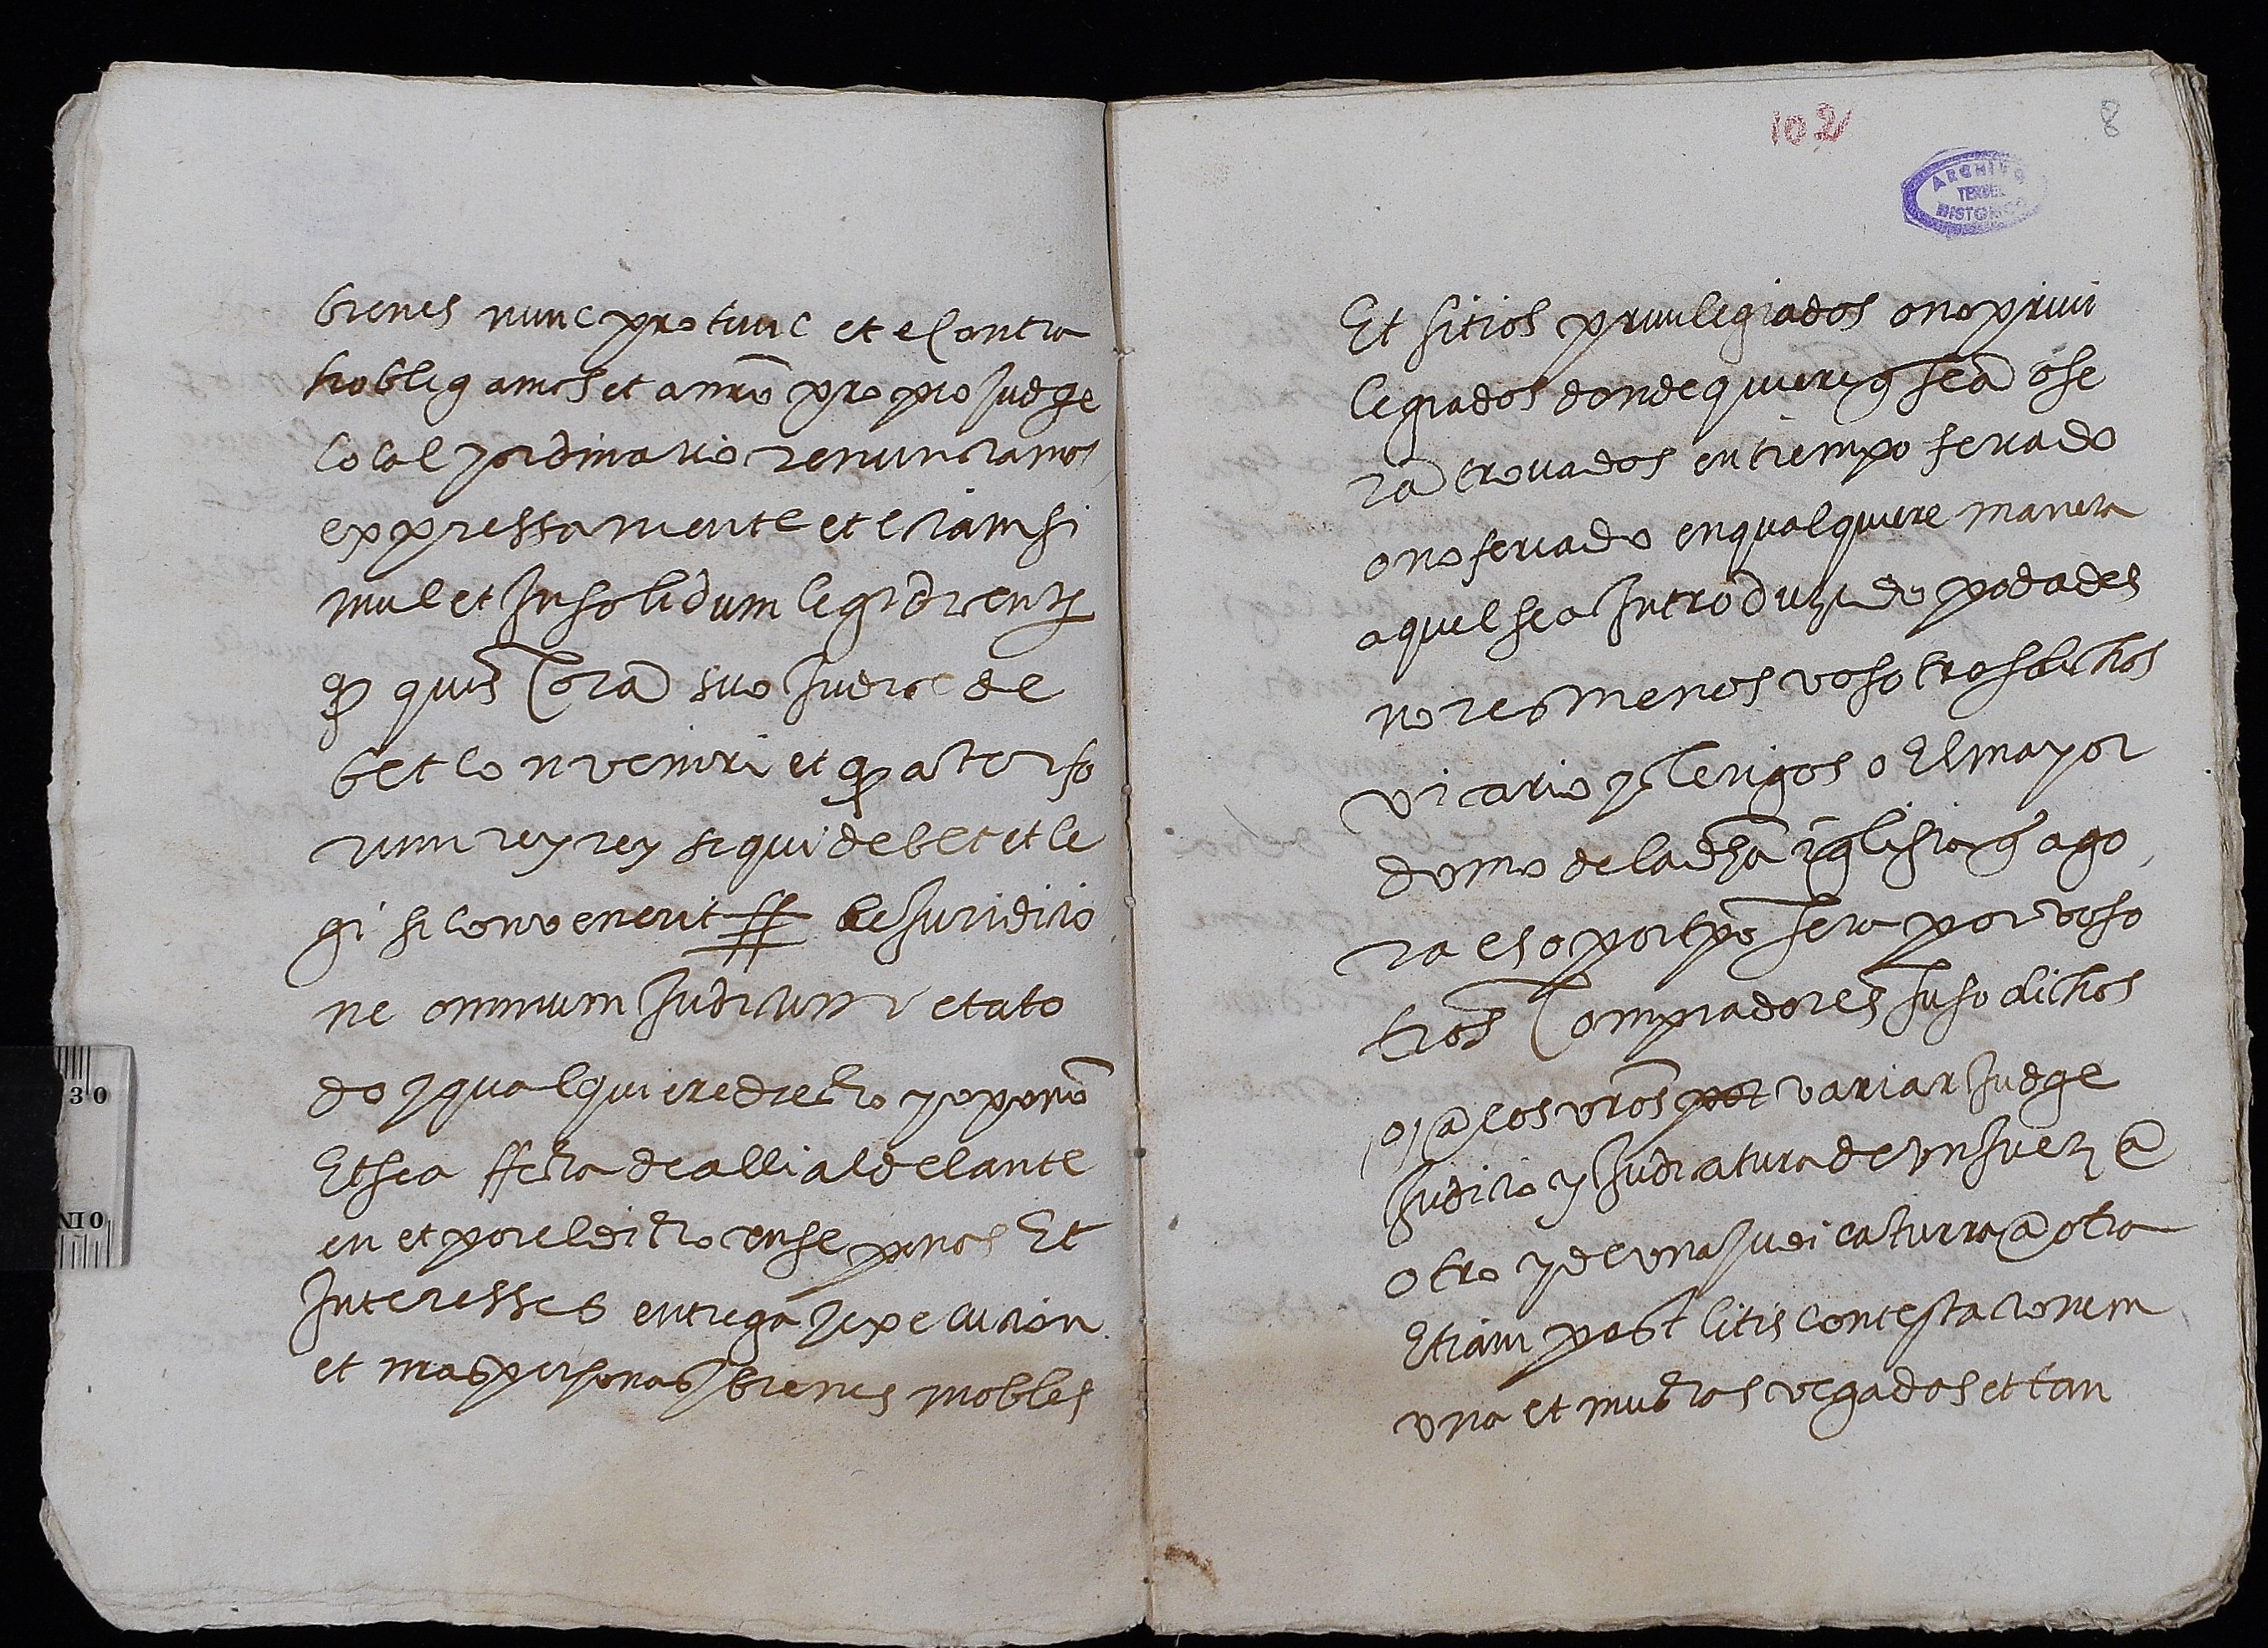 bienes nunc pro tunc et e contra
hobligamos et a nrõ propio Judge
local y ordinario renunciamos
expressamente et etiam si
mul et Insolidum legi dicenti
q̃ quis Corã suo Judice de
bet conveniri et q̃ actor fo
rum rey rey sequi debet et le
gi si convenerit de Juridicio
ne omnium Judicum et a to
do y qualquiere drecho y openiõ
Et sea ffecta de alli al delante
en et por el dicho cense penas Et
Interesses entrega y execucion
et nrãs personas y bienes mobles
102
8
ARCHIVO
HISTORICO
TERUEL
Et sitios privilegiados o no privi
legiados donde quiere q̃ seã o se
rã trovados en tiempo feriado
o no feriado en qualquiere manera
aquel sea Introduzido podades
no res menos vosotros dichos
vicario y clerigos o El mayor
domo de la dhã iglesia q̃ ago
ra es o por tpõ sera por voso
tros Compradores suso dichos
o a los vrõs por variar Judge
Judicio y Judicatura de un Juez a
otro y de una Judicaturra a otra
Etiam post litis contestacionem
una et muchas vegadas et tan